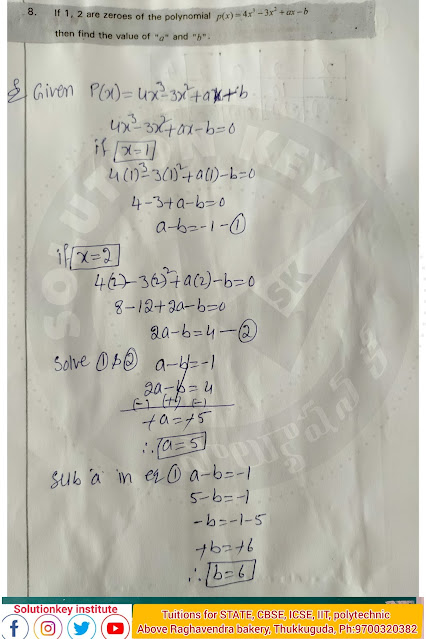 8. If 1, 2 are zeroes of the polynomial p(x) = 4x³ - 3x² + ax - b
then find the value of "a" and "b".
Given P(x) = 4x³-3x²+ax+b
4x³-3x²+ax-b=0
if x=1
4(1)³-3(1)²+a(1)-b=0
4-3+a-b=0
a-b=-1-①
if x=2
4(2)-3(2)²+a(2)-b=0
8-12+2a-b=0
2a-b=4-②
Solve ①&② a-b=-1
2a-b=4
(-) (+) (-)
+a=+5
∴ a=5
Sub 'a' in eq ① a-b=-1
5-b=-1
-b=-1-5
+b=+6
∴ b=6
SOLUTION KEY
SK
Solutionkey institute
Tuitions for STATE, CBSE, ICSE, IIT, polytechnic
Above Raghavendra bakery, Thukkuguda, Ph:9700320382